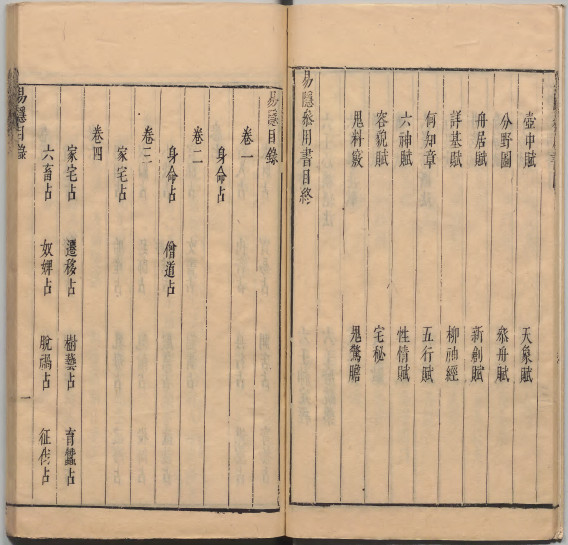 壺中賦 天象賦
分野圖 叅舟賦
舟居賦 新創賦
詳基賦 柳神經
何知章 五行賦
六神賦 性情賦
容貌賦 宅秘
鬼料竅 鬼驚膽
易隱叅用書目終
易隱目錄
卷一
身命占
卷二
身命占 僧道占
卷三
家宅占
卷四
家宅占 遷移占 樹藝占 育蠶占
六畜占 奴婢占 脫禍占 征住占
易隱目錄
一